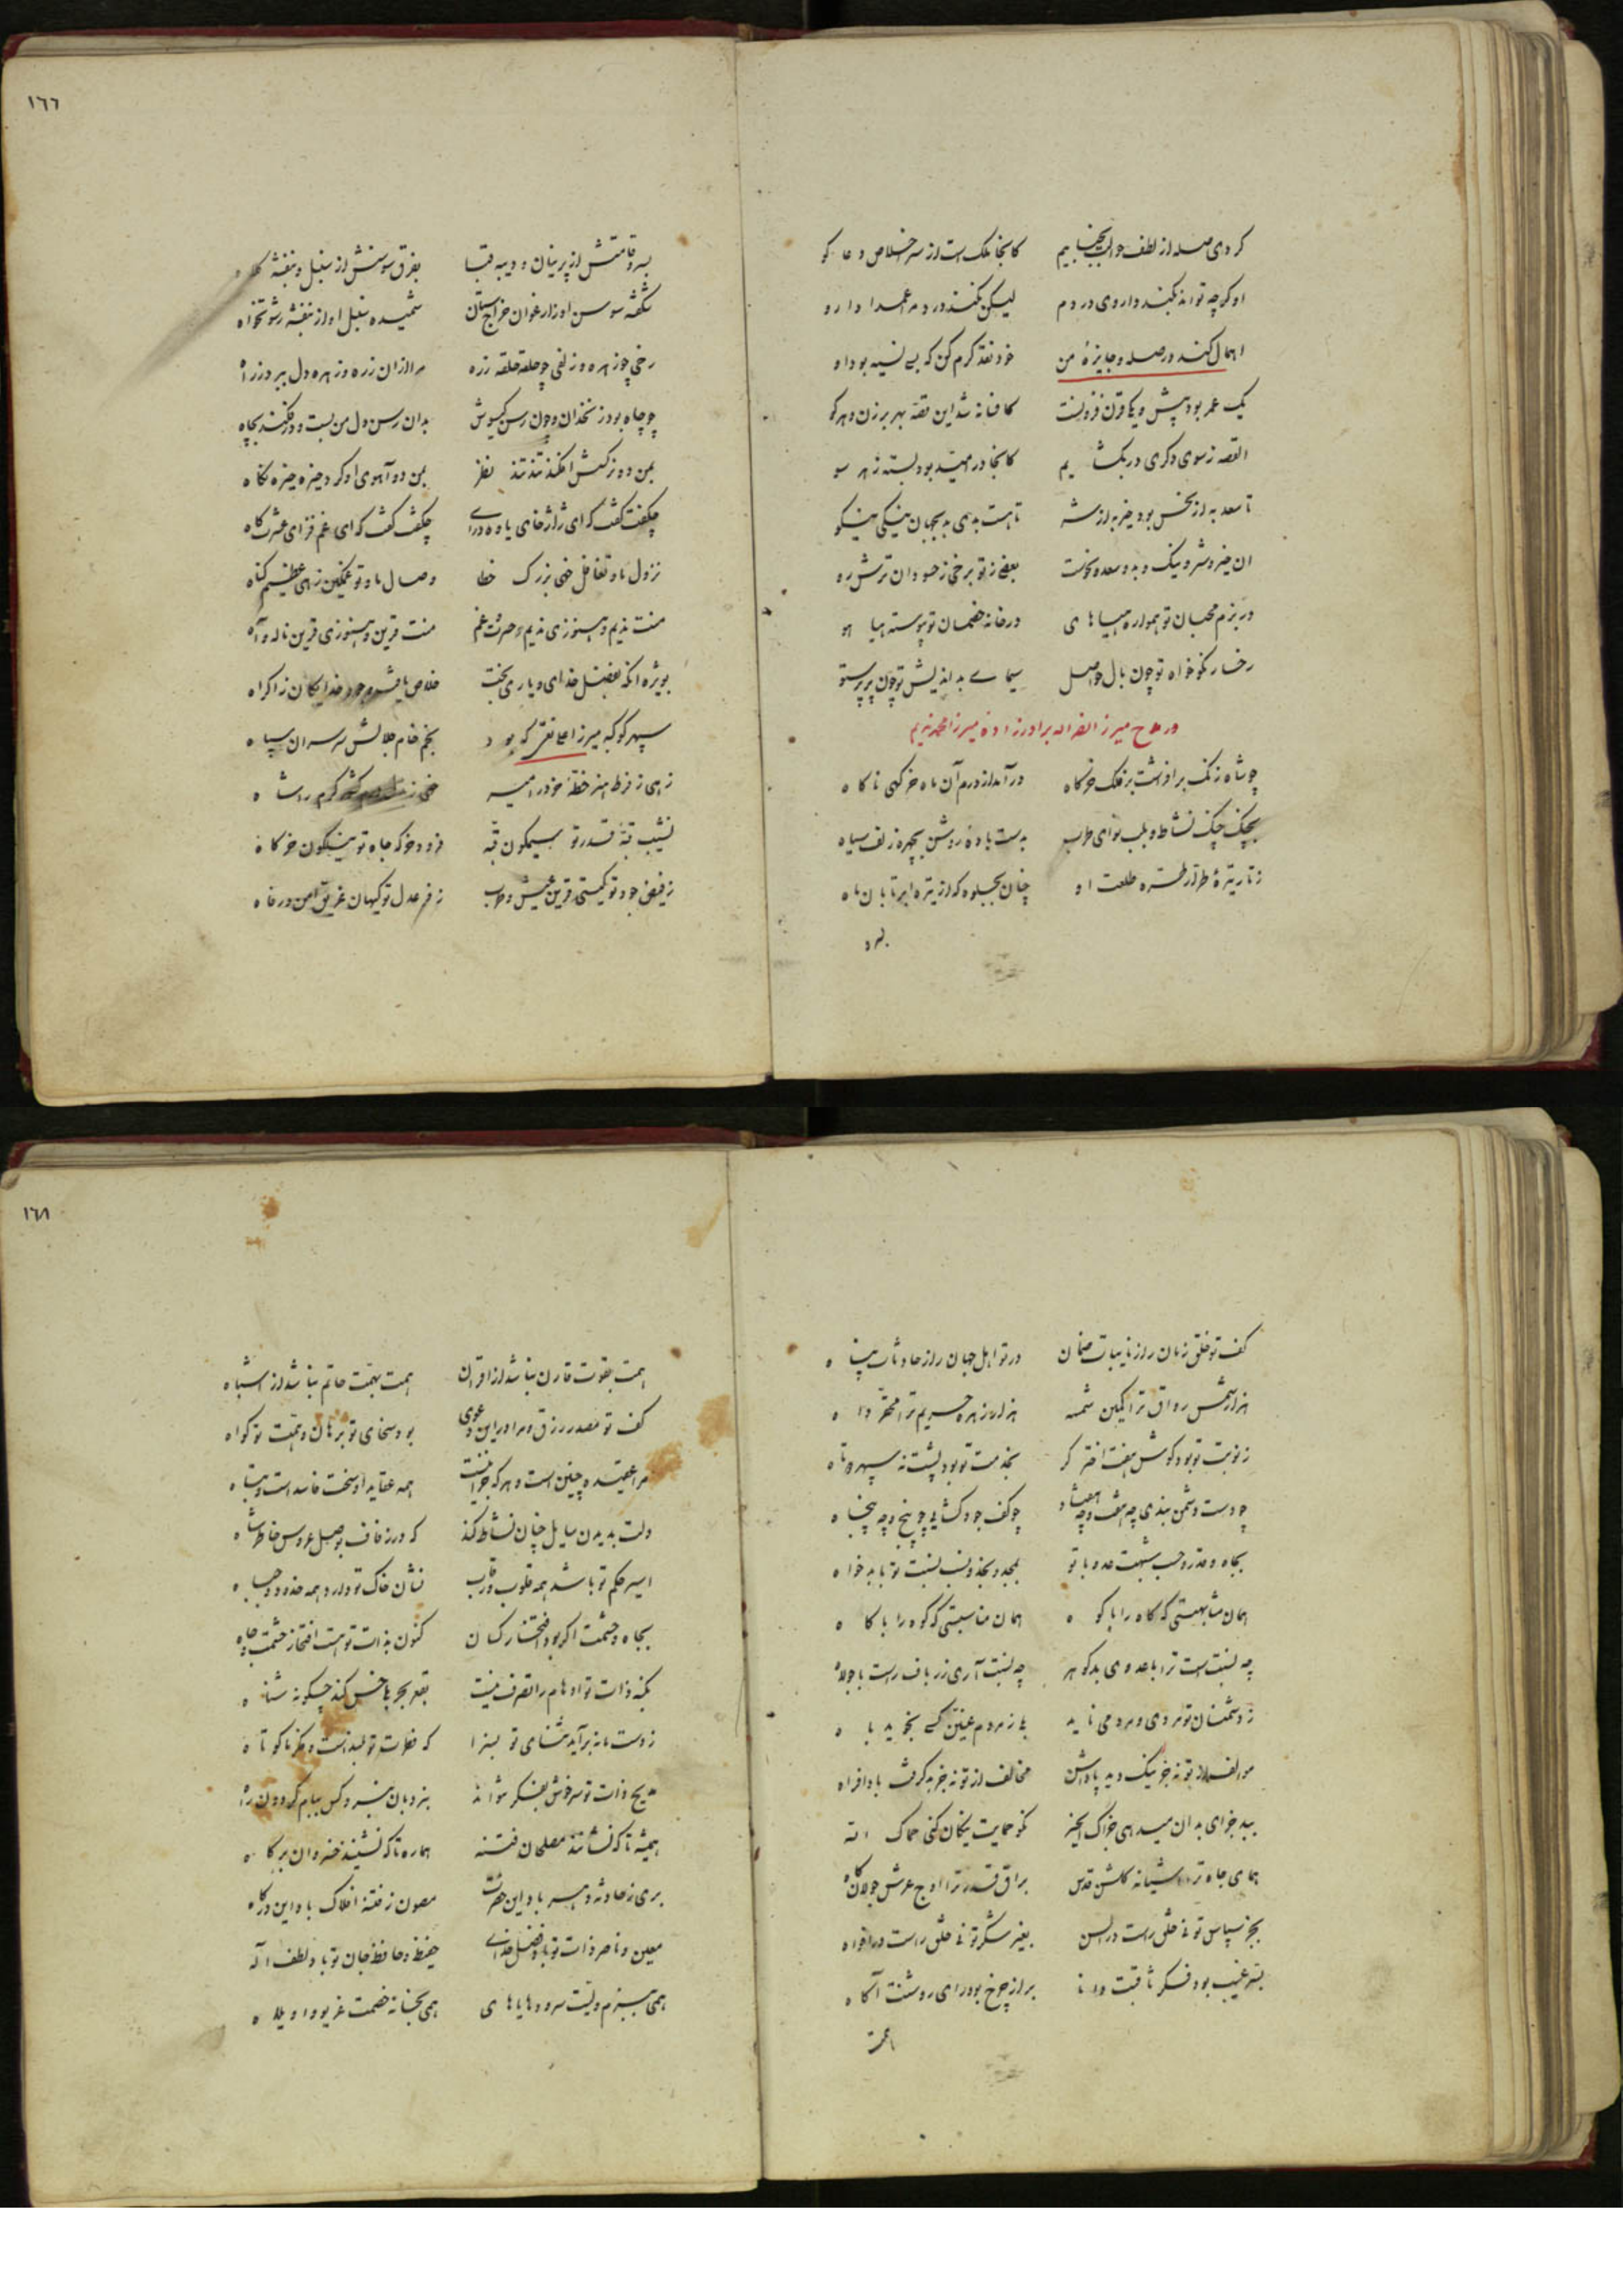 کردی صله از لطف و
کانجا ملک است از سر اخلاص دعا گو
او گرچه تواند بکند داروی دردم
لیکن نکند درد مرا عمدا دارو
اهمال کند در صله و جایزهٔ من
خود نقد کرم کن که به نسیه بود او
یک عمر بود پیش و یکا قرن فزونست
کافسانه شد این قصه بهر برزن و هر کو
القصه ز سوی دگری در بگشایم
کانجا در امید بود بسته ز هر سو
تا سعد به از نحس بود خیر به از شر
تا هست بدی بد بجهان نیکی نیکو
ان خیر و شر و نیک و بد و سعد و نحوست
بعضی ز تو برخی ز حسودان ترش رو
در بزم محبان تو همواره هیاهای
در خانه خصمان تو پیوسته هیاهو
رخسار نکو خواه تو چون بال حواصل
سیمای بد اندیش تو چون پر پرستو
در مدح میرزا نصرالله برادرزاده میرزا محمد ندیم
چو شاه زنگ برافراشت بر فلک خرگاه
در آمد از درم آن ماه خرگهی ناگاه
بچنگ چنگ نشاط و بلب نوای طرب
بدست باده روشن بچهره زلف سیاه
ز تار تیرهٔ طرار طره طلعت او
چنان بجلوه که از تیره ابر تابان ماه
بسرو
١٦٦
بسرو قامتش از پرنیان و دیبه قبا
بفرق سوسنش از سنبل و بنفشه کلاه
شکفته سوسن او از ارغوان خراج ستان
شمیده سنبل او از بنفشه رشوتخواه
رخی چو زهره و زلفی چو حلقه حلقه زره
مرا از ان زره و زهره دل ببرد ز راه
چو چاه بود زنخدان و چون رسن گیسوش
بدان رسن دل من بست و در فکند بچاه
بمن دو نرگسش افکند تند تند نظر
بمن دو آهوی او کرد خیره خیره نگاه
چگفت گفت که ای ژاژخای یاوه درای
چگفت گفت که ای غم فزای عشرت کاه
نزول ما و تغافل خهی بزرگ خطا
وصال ما و تو غمگین زهی عظیم گناه
منت ندیم و هنوزی ندیم و حسرت غم
منت قرین و هنوزی قرین ناله و آه
بویژه آنکه بفضل خدای و یاری بخت
خلاص یافت وجود خدایگان ز اکراه
سپهر کوکبه میرزا علی نقی که بود
بخم خام جلالش سر سران سپاه
زهی ز فرط هنر خطهٔ خود را میر
خهی ز کشور کرم را شاه
نشیب قبهٔ قدر تو سیمگون قبه
فرود خرگه جاه تو نیلگون خرگاه
ز فیض جود تو گیتی قرین عیش و طرب
ز فر عدل تو گیهان غریق امن و رفاه
کف تو خلق زمان را ز نایبات ضمان
در تو اهل جهان را ز حادثات پناه
هزار شمس رواق ترا کمین شمسه
هزار زهره حریم ترا محقر داه
ز نوبت تو بود گوش هفت اختر کر
بخدمت تو بود پشت نه سپهر دوتاه
چو دست دشمن بندی چه هفت و چه هفتاد
چو کف جود گشایی چه پنج و چه پنجاه
بجاه و قدر و حسب شبهت عدو با تو
بمجد و بجد و نسب نسبت تو با بدخواه
همان مشابهتی که کاه را با کوه
همان مناسبتی که کوه را با کاه
چه نسبت است ترا با عدوی بد گوهر
چه نسبت آری زرباف راست با جولاه
ز دشمنان تو مردی و مردمی ناید
ز مردم عنین کسی نجوید باه
موالف از تو نه جز نیک دید پاداشن
مخالف از تو نه جز بد گرفت بادافراه
ببد جزای بدان میدهی جزاک الخیر
نکو حمایت نیکان کنی حماک الله
همای جاه ترا آشیانه گلشن قدس
براق قدر ترا اوج عرش جولانگاه
بجز سپاس تو نی خلق راست در السن
بغیر شکر تو نی خلق راست در افواه
بسر غیب بود فکر ثاقبت دانا
براز چرخ بود رای روشنت آگاه
همت
١٦٧
همت بقوت قارن نباشد از اقران
همت بهمت حاتم نباشد از اشباه
کف تو مصدر رزق و مرا در این دعوی
بود سخای تو برهان و همتت تو گواه
مرا عقیده چنین است و هر که جز اینست
همه عقاید او سخت فاسد است و تباه
دلت بدیدن سایل چنان نشاط کند
که در زفاف بوصل عروس خاطر شاه
اسیر حکم تو باشد همه قلوب و رقاب
نشان خاک تو دارد همه خدود و جباه
بجاه و حشمت اگر بود افتخار کسان
کنون بذات تو هست افتخار حشمت و جاه
بکنه ذات تو اوهام را تصرف نیست
بقعر بحر خس کند چگونه شناه
ز دست ما نه برآید ثنای تو بسزا
که فطرت تو بلند است و فکر ما کوتاه
مدیح ذات تو نتوان
بنردبان نبرد کس ببام گردون راه
همیشه تا که نشانند مصلحان فتنه
هماره تا که نشینند خسروان بر گاه
بری ز حادثه دهر باد این حضرت
مصون ز فتنهٔ افلاک باد این درگاه
معین و ناصر ذات تو باد فضل خدای
حفیظ و حافظ جان تو باد لطف اله
همی ببزم ولیت سرود هایاهای
همی بخانه خصمت غریو واویلاه